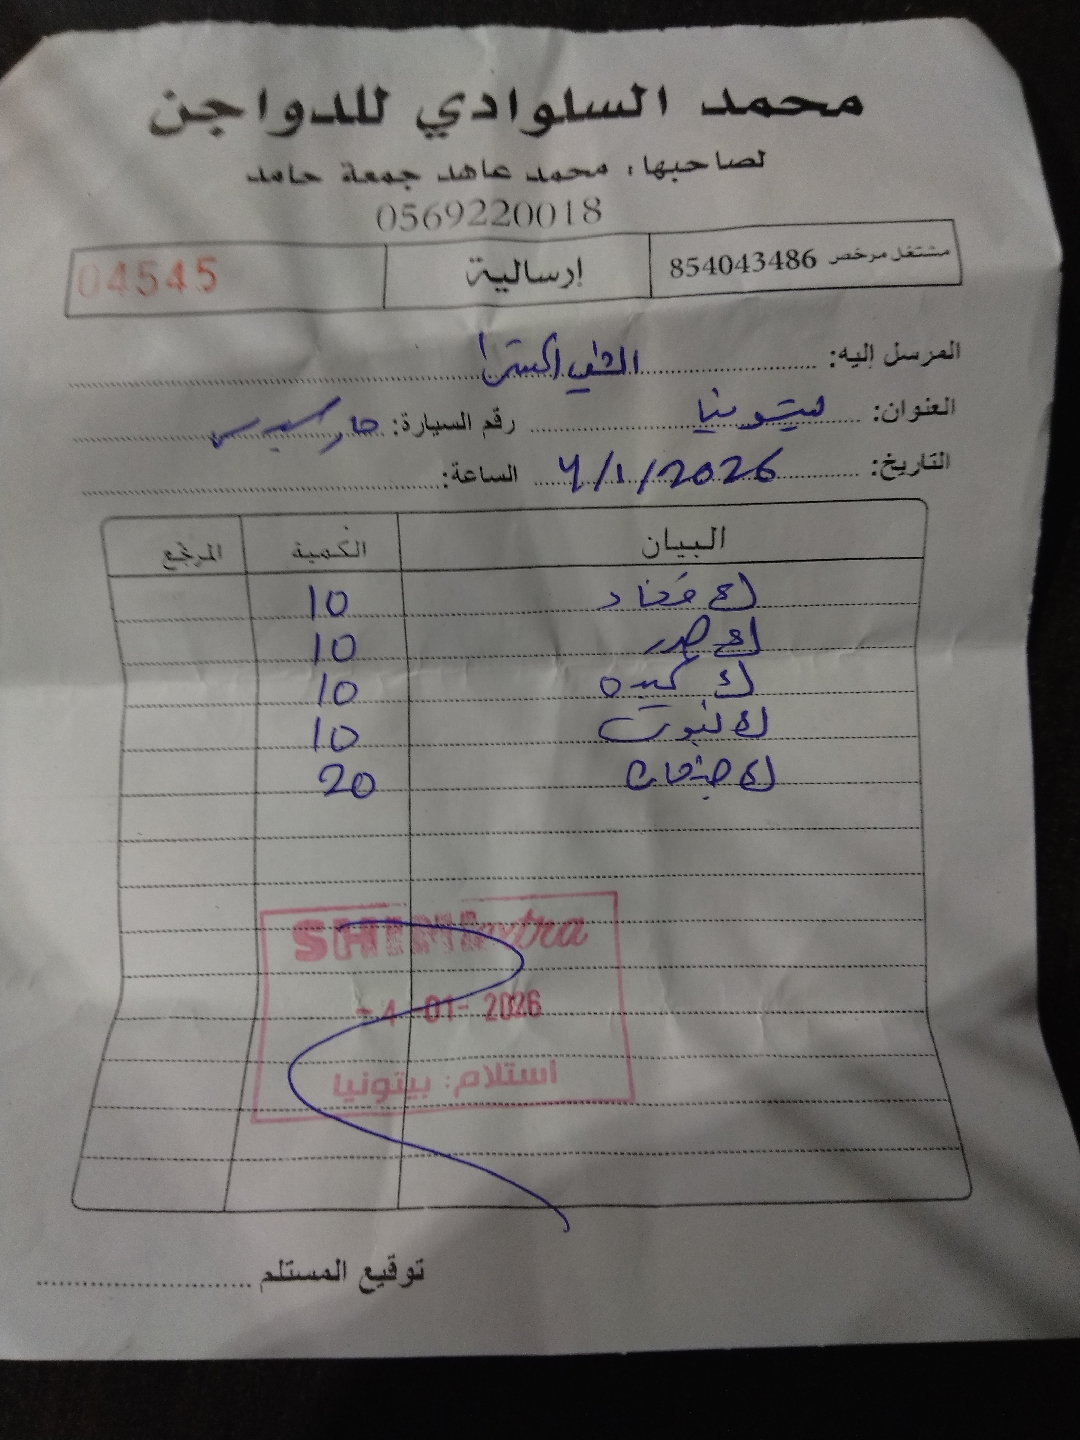 محمد السلوادي للدواجن
لصاحبها: محمد عاهد جمعة حامد
0569220018
مشتغل مرخص 854043486 إرسالية 04545
المرسل إليه: الشني اكسترا
العنوان: بيتونيا رقم السيارة:
التاريخ: 4/1/2026 الساعة:
البيان الكمية المرتجع
ك 10
ك صدر 10
ك كبده 10
ك 10
ك جنحات 20
SHINI extra
-4-01-2026
استلام: بيتونيا
توقيع المستلم